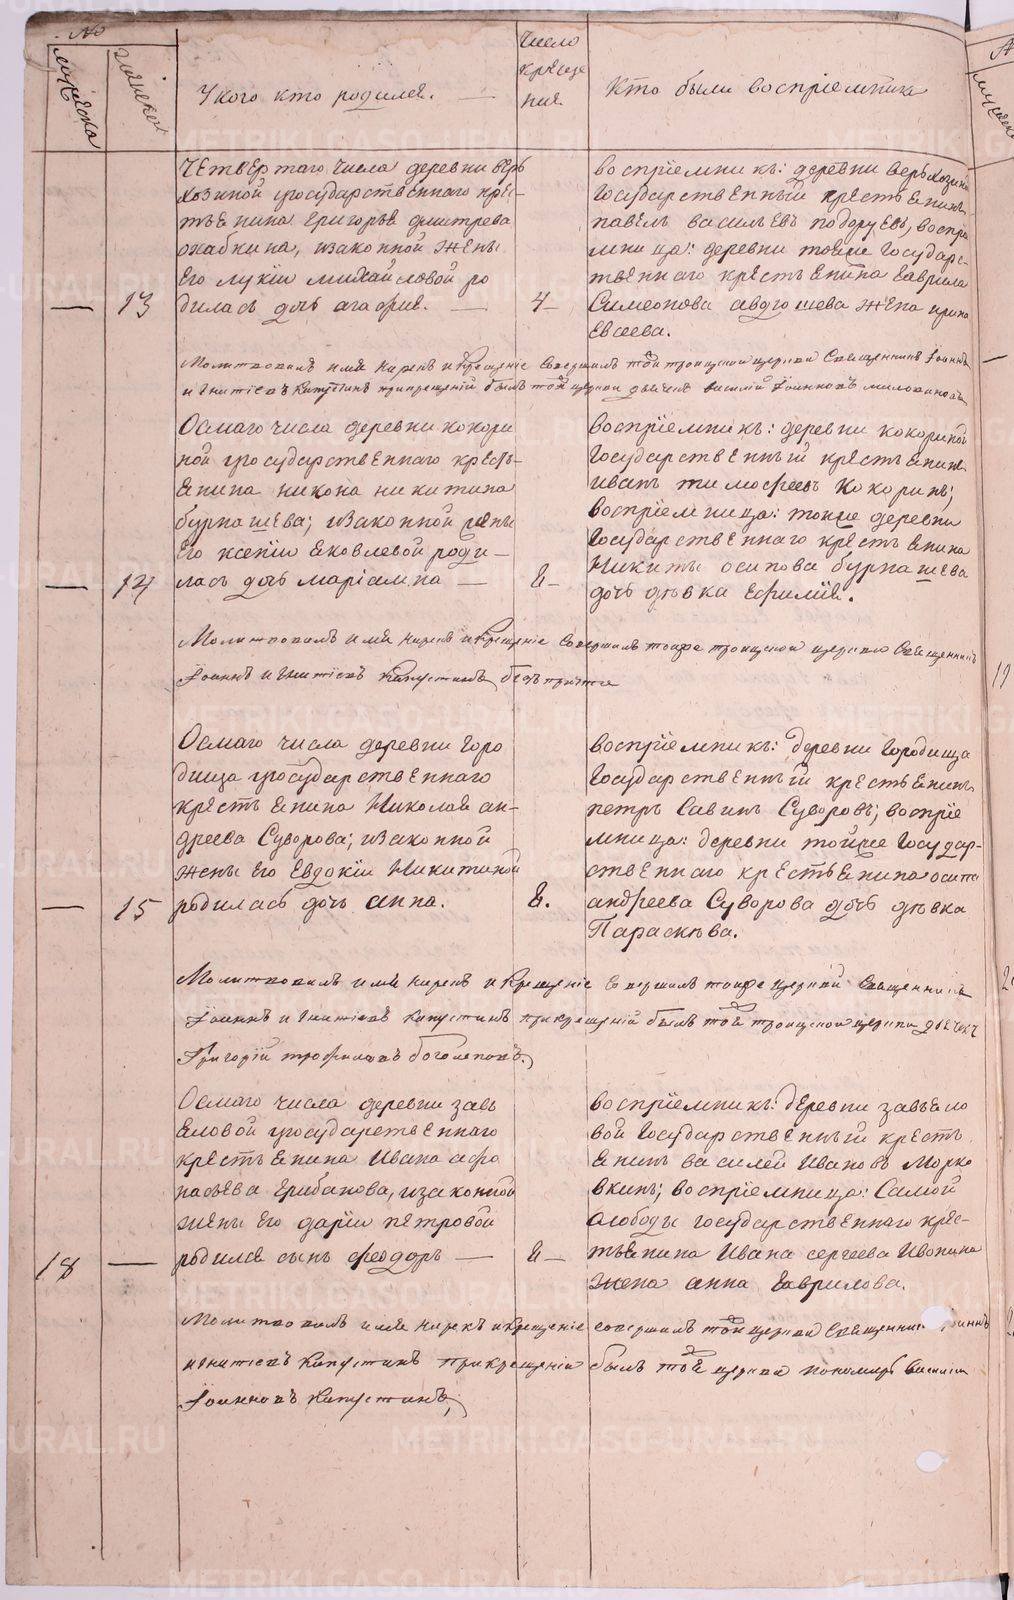 №
мужеска
женска
У кого кто родился.
Число
креще
ния
Кто были восприемники
Четвертаго числа деревни верх
козиной государственнаго крес-
тьянина григорья дмитрева
охабкина, изаконной жены
Его лукии михайловой ро
дилась дочь агафия.
13
4
восприемникъ: деревни верхкозиной
Государственный крестьянинъ
павелъ васильевъ подоруевъ, воспри
мница: деревни тойже Государс-
твеннаго крестьянина гаврила
Симеонова авдюшева жена ирина
Евсеева.
Молитвовалъ имя нарекъ и крещение совершилъ той троицкой церкви Священникъ Iоаннъ
Игнатiевъ Капустинъ прикрещенiи былъ той церкви дьячекъ василiй Iоанновъ миловановъ
Осмаго числа деревни кокори
ной государственнаго кресть-
янина никона никитина
бурнашева; изаконной жены
Его ксенiи яковлевой роди-
лась дочь марiамна
14
8
восприемникъ: деревни кокориной
Государственный крестьянинъ
иванъ тимофеевъ Кокоринъ;
восприемница: тойже деревни
Государственнаго крестьянина
Никиты осипова бурнашева
дочь девка Ефимiя.
Молитвовалъ имя нарекъ и крещение совершилъ тояже троицкой церкви Священникъ
Iоаннъ Игнатiевъ Капустинъ безъ причта
Осмаго числа деревни Горо
дища государственнаго
крестьянина Николая ан-
дреева Суворова; изаконной
жены Его Евдокiи Никитиной
родилась дочь анна.
15
8.
восприемникъ: деревни Городища
Государственный крестьянинъ
петръ Савинъ Суворовъ; восприе
мница: деревни тойже Государ-
ственнаго крестьянина осипа
андреева Суворова дочь девка
Параскева.
Молитвовалъ имя нарекъ и крещение совершилъ тояже церкви Священникъ
Iоаннъ Игнатiевъ Капустинъ прикрещенiи былъ той троицкой церкви дьячекъ
Григорiй трофимовъ боголеповъ.
Осмаго числа деревни завь
яловой государственнаго
крестьянина Ивана афо
насьева Грибанова, изаконной
жены Его дарiи петровой
родился сынъ феодоръ
18
8
восприемникъ: деревни завьяло
вой Государственный кресть
янинъ василей Ивановъ Морко
вкинъ; восприемница: Самой
слободы государственнаго крес-
тьянина Ивана сергеева Ивонина
жена анна гаврилова.
Молитвовалъ имя нарекъ и крещение совершилъ той церкви Священникъ Iоаннъ
Игнатiевъ Капустинъ прикрещенiи былъ той церкви пономарь василiй
Iоанновъ Капустинъ
METRIKI.GASO-URAL.RU